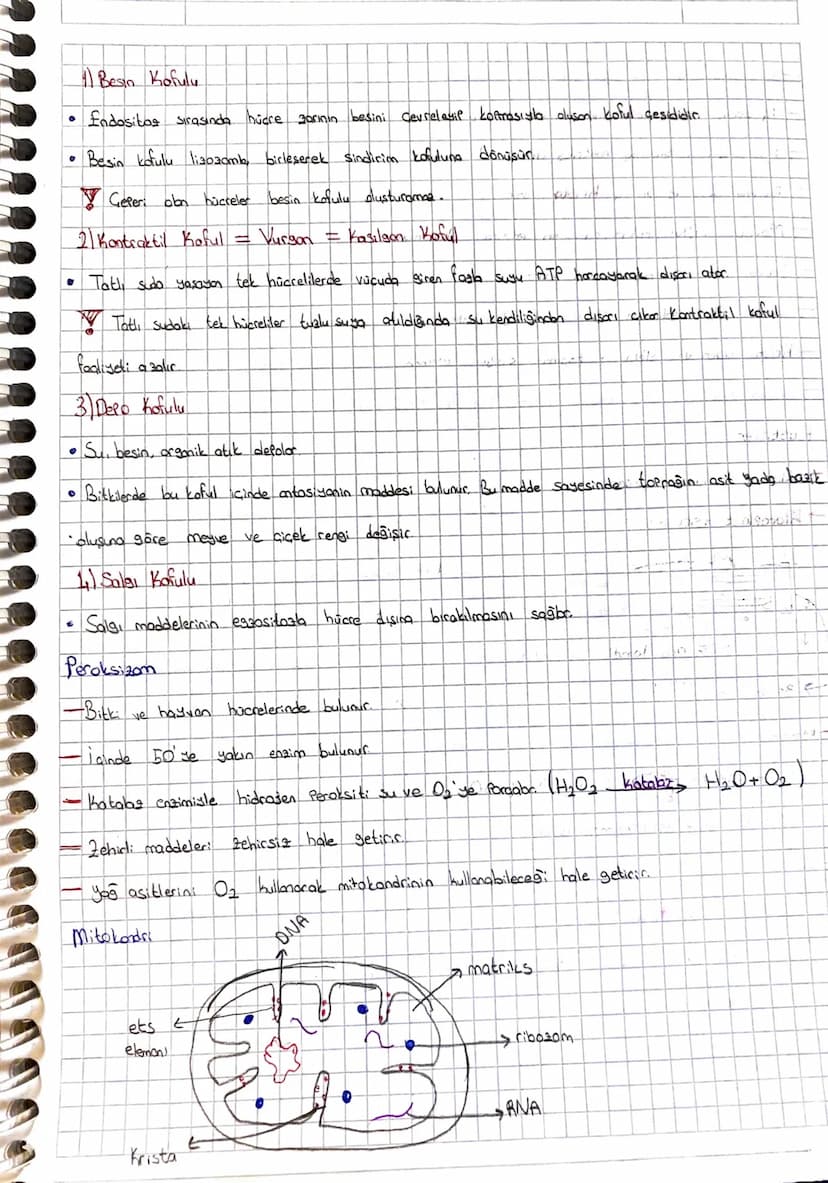 1) Besin Kofulu
• Endositoz sırasında hücre zarının besini çevreleyip koparmasıyla oluşan koful çeşididir.
• Besin kofulu lizozomla birleşerek sindirim kofuluna dönüşür.
Çeperi olan hücreler besin kofulu oluşturamaz.
2) Kontraktil Koful = Vurgan = Kasılgan Koful
• Tatlı suda yaşayan tek hücrelilerde vücuda giren fazla suyu ATP harcayarak dışarı atar.
Tatlı sudaki tek hücreliler tuzlu suya atıldığında su kendiliğinden dışarı çıkar Kontraktil koful
faaliyeti azalır
3) Depo Kofulu
• Su, besin, organik atık depolar
• Bitkilerde bu koful içinde antosiyanin maddesi bulunur. Bu madde sayesinde toprağın asit yada bazik
oluşuna göre meyve ve çiçek rengi değişir
4) Salgı Kofulu
• Salgı maddelerinin egzositozla hücre dışına bırakılmasını sağlar.
Peroksizom
— Bitki ve hayvan hücrelerinde bulunur.
— İçinde 50'ye yakın enzim bulunur
— Katalaz enzimiyle hidrojen peroksiti su ve O₂'ye parçalar. (H₂O₂ katalaz→ H₂O + O₂)
— Zehirli maddeleri zehirsiz hale getirir.
— Yağ asitlerini O₂ kullanarak mitokondrinin kullanabileceği hale getirir.
Mitokodri
DNA
matriks
ets
elemanı
ribozom
RNA
Krista